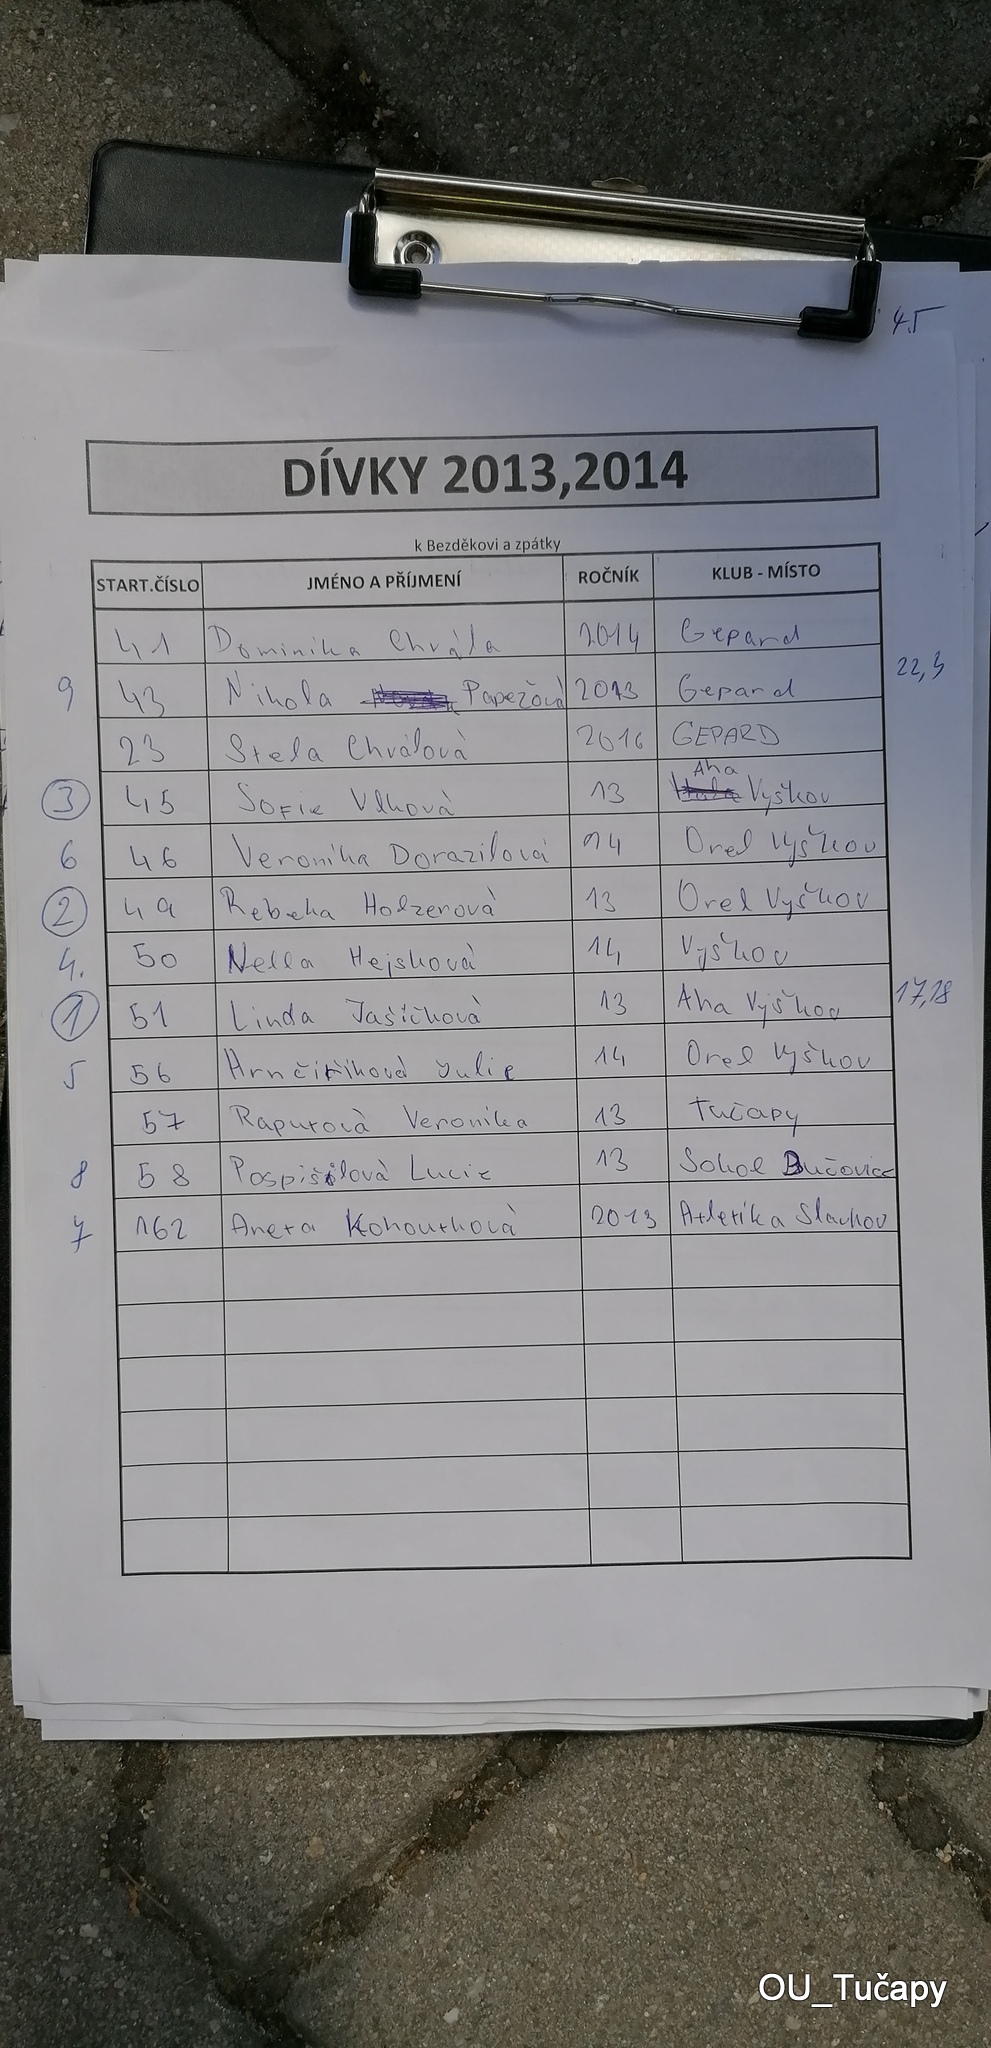 4.5
DÍVKY 2013,2014
k Bezděkovi a zpátky
START.ČÍSLO JMÉNO A PŘÍJMENÍ ROČNÍK KLUB - MÍSTO
41 Dominika Chvála 2014 Gepard
9 43 Nikola Papežová 2013 Gepard 22,3
23 Stela Chválová 2016 GEPARD
3 45 Sofie Vlková 13 Aha Vyškov
6 46 Veronika Dorazilová 14 Orel Vyškov
2 49 Rebeka Holzerová 13 Orel Vyškov
4. 50 Nella Hejsková 14 Vyškov
1 51 Linda Jašíčková 13 Aha Vyškov 17,18
5 56 Hrnčiříková Julie 14 Orel Vyškov
57 Raputová Veronika 13 Tučapy
8 58 Pospíšilová Lucie 13 Sokol Bučovice
7 162 Aneta Kohoutková 2013 Atletika Slavkov
OU_Tučapy